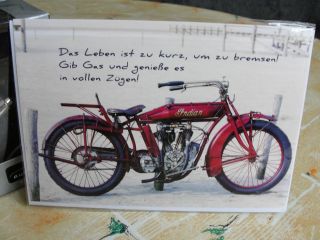 Das Leben ist zu kurz, um zu bremsen!
Gib Gas und genieße es
in vollen Zügen!
Indian